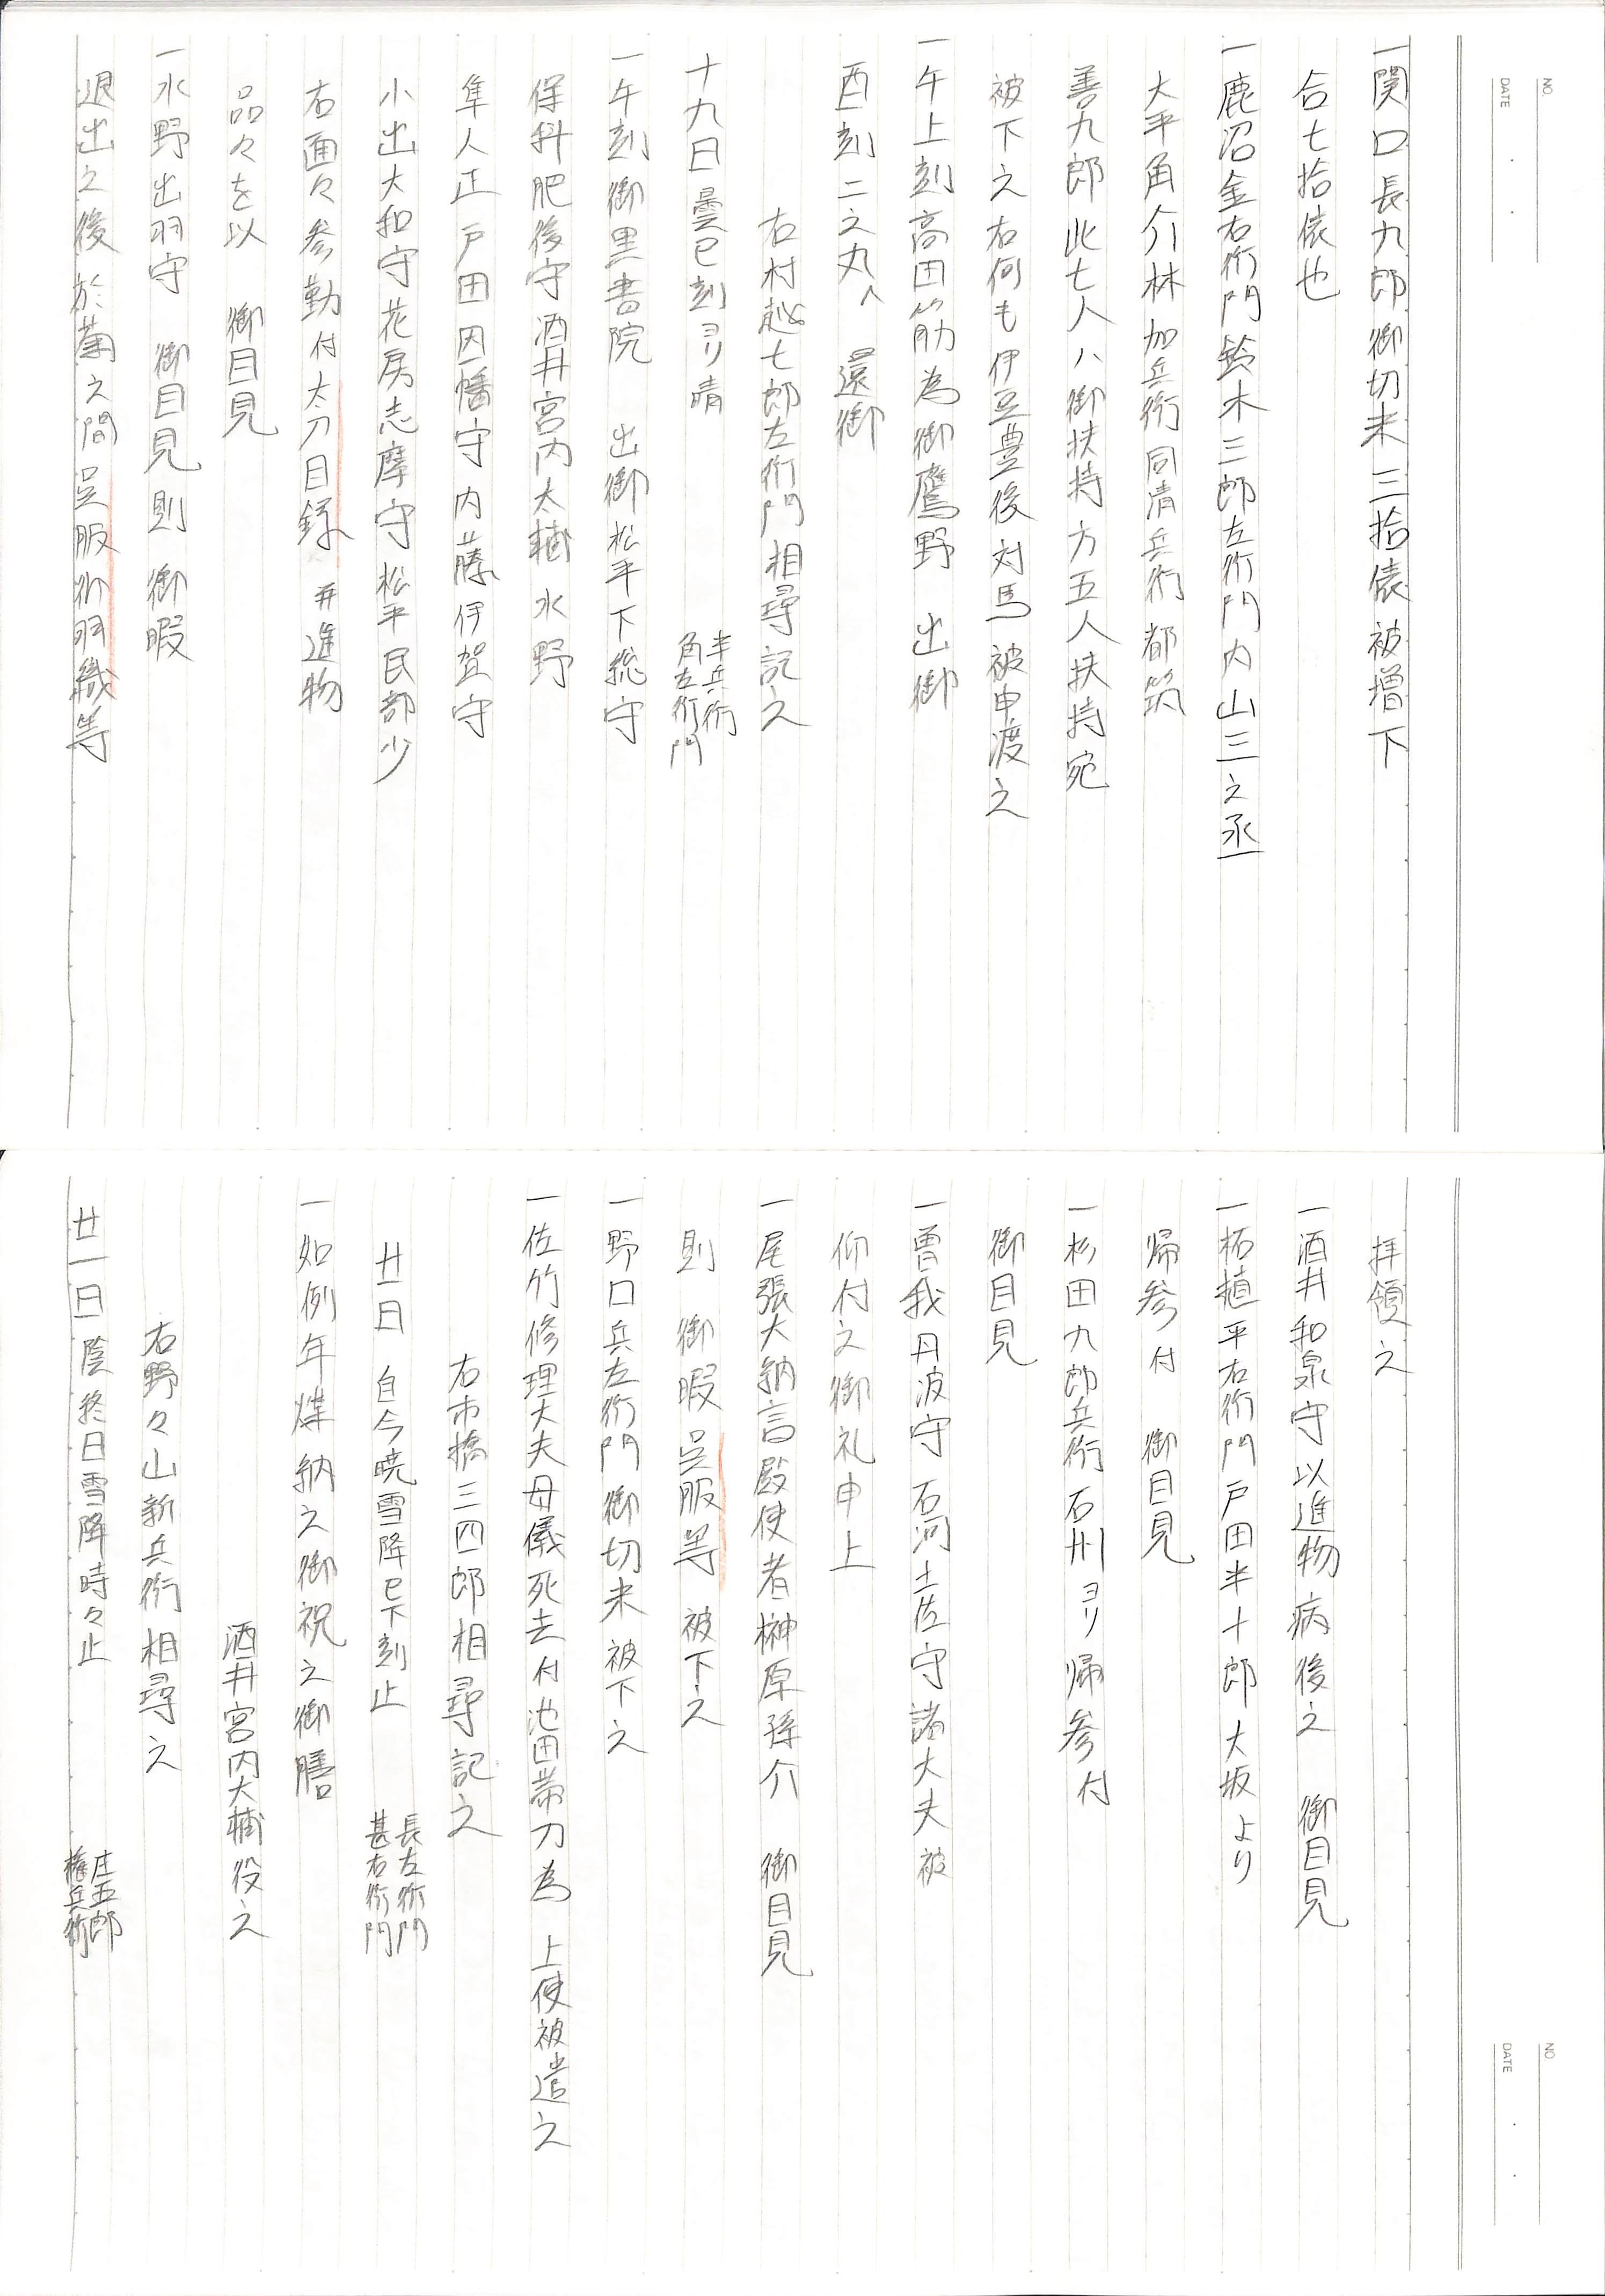 NO.
DATE
一関口長九郎御切米三拾俵被増下
合七拾俵也
一鹿沼金右衛門鈴木三郎左衛門内山三之丞
大平角介林加兵衛同清兵衛都筑
善九郎此七人ハ御扶持方五人扶持宛
被下之右何も伊豆豊後対馬被申渡之
一午上刻高田筋為御鷹野 出御
酉刻二之丸へ 還御
右村越七郎左衛門相尋記之
十九日曇巳刻ヨリ晴 半兵衛
角左衛門
一午刻御黒書院 出御松平下総守
保科肥後守酒井宮内太輔水野
隼人正戸田因幡守内藤伊賀守
小出大和守花房志摩守松平民部少
右面々参勤付太刀目録并進物
品々を以 御目見
一水野出羽守 御目見則御暇
退出之後於菊之間呉服御羽織等
NO.
DATE
拝領之
一酒井和泉守以進物病後之 御目見
一柘植平右衛門戸田半十郎大坂より
帰参付 御目見
一杉田九郎兵衛石州ヨリ帰参付
御目見
一曽我丹波守石河土佐守諸大夫被
仰付之御礼申上
一尾張大納言殿使者榊原孫介 御目見
則 御暇呉服等被下之
一野口兵左衛門御切米被下之
一佐竹修理大夫母儀死去付池田帯刀為 上使被遣之
右市橋三四郎相尋記之
廿日 自今暁雪降巳下刻止 長左衛門
甚右衛門
一如例年煤納之御祝之御膳
酒井宮内大輔役之
右野々山新兵衛相尋之
廿一日陰終日雪降時々止 庄五郎
権兵衛